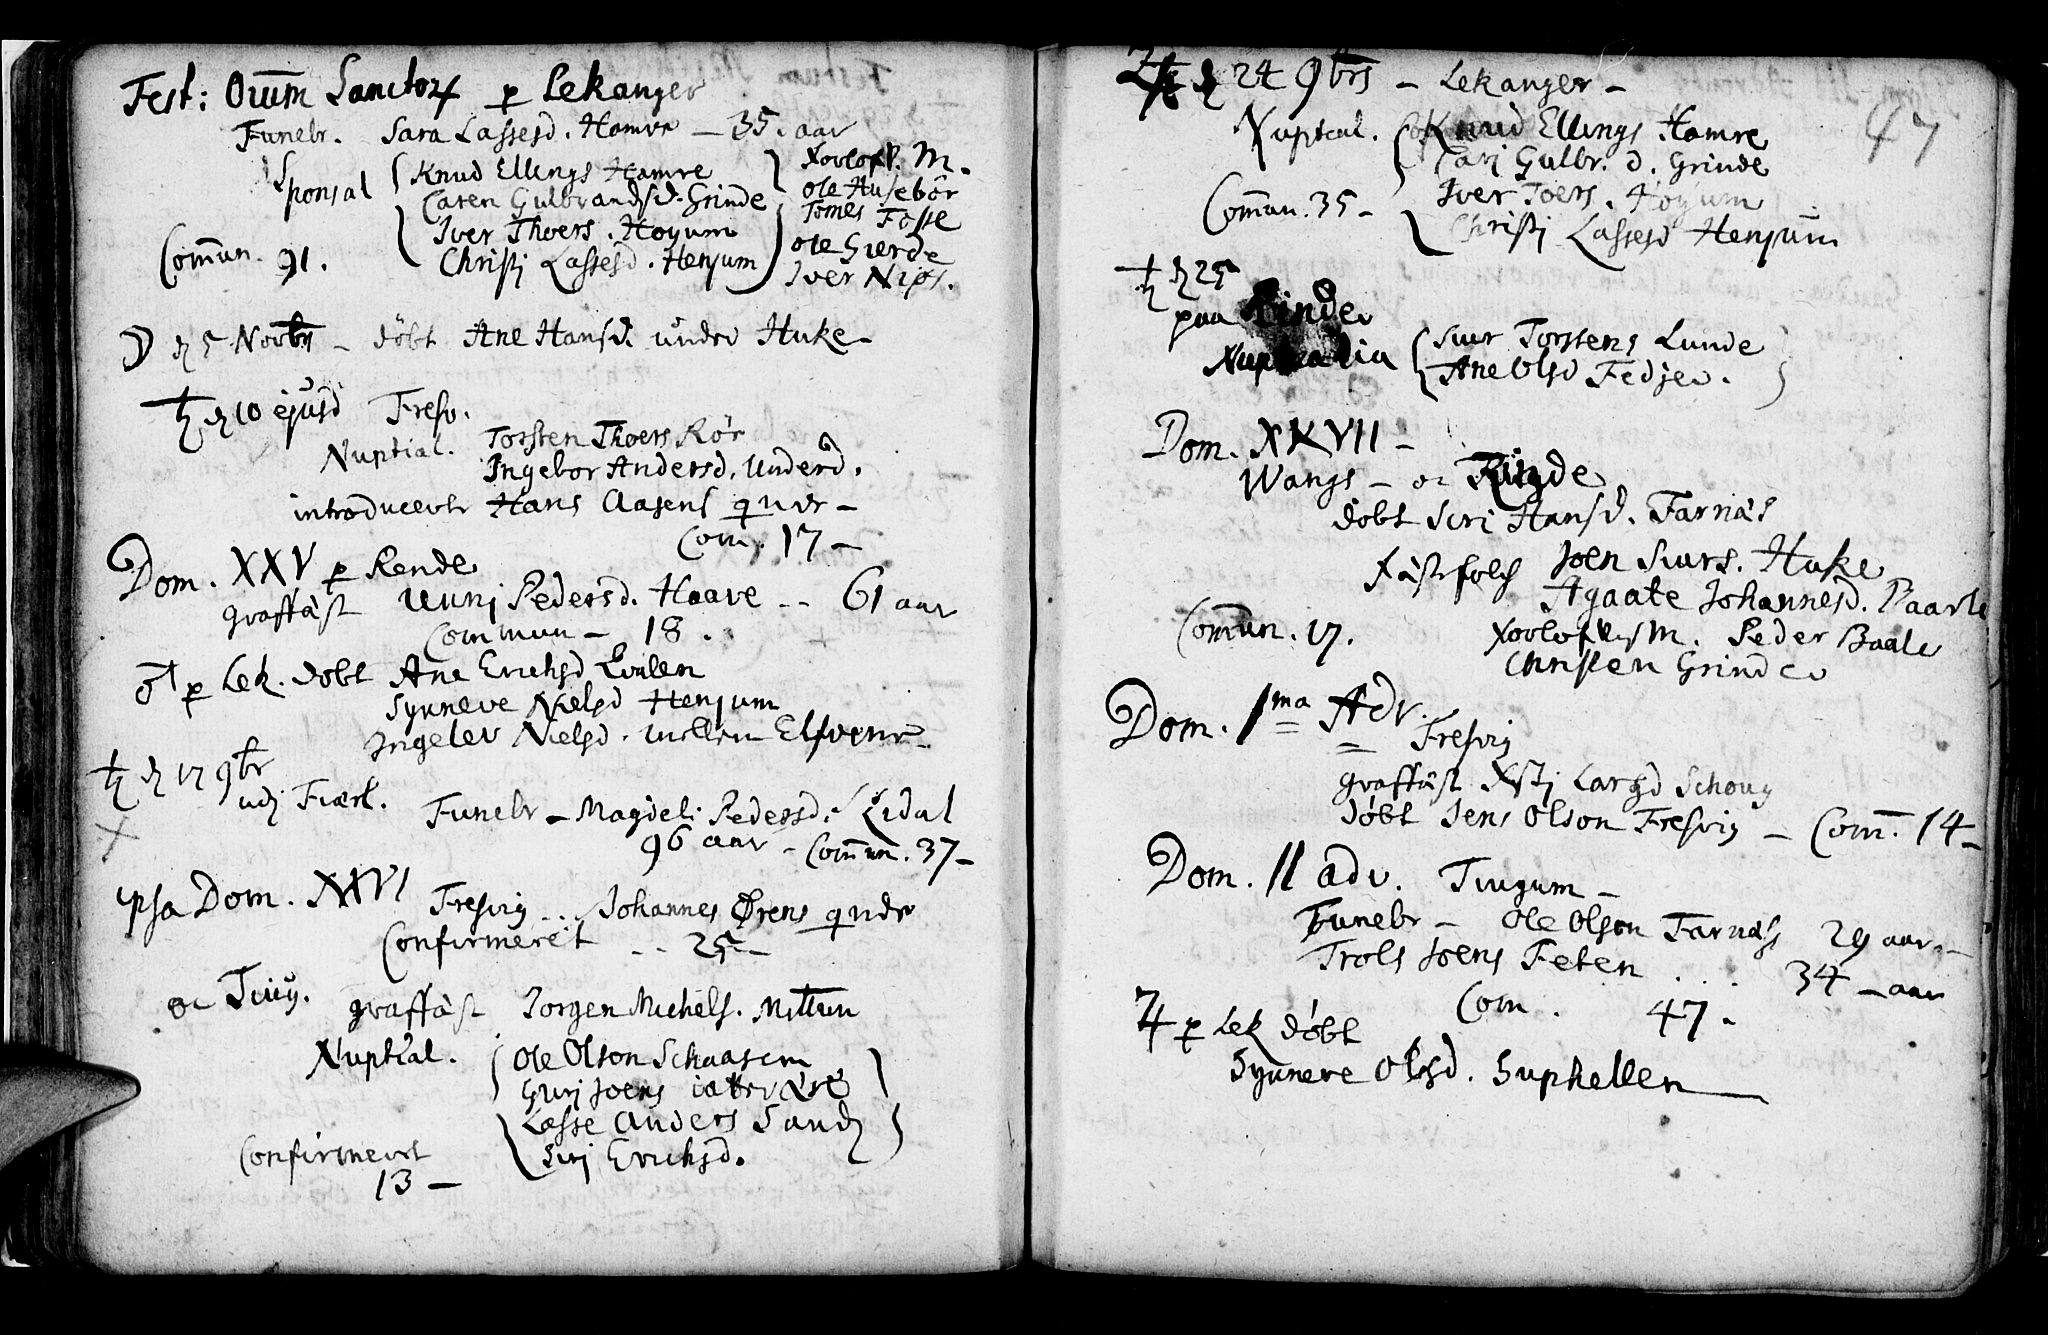 Fest: Om̄m Sanctor p Lekanger
Funebr. Sara Lassesd. Hamre – 35. aar
Sponsal Knud Ellings Hamre
Caren Gulbrandsd. Grinde
Iver Thoers. Høyum
Christj Lassesd. Henjum
Xovlofv. M.
Ole Husebör
Tomes Fosse
Ole Gierde
Iver Nips.
Com̄un. 91.
d 5 Novbr – döbt Ane Hansd. under Huke
d 10 ejusd Fresv.
Nuptial. Torsten Thoers Rör
Ingebor Andersd. Underd.
introducerte Hans Aasens qvde –
Com. 17 –
Dom. XXV p Rende
graffäst Unnj Pedersd. Haave -- 61 aar
Commun – 18.
♂ p Lek. döbt Ane Erichsd Qvilen
Synneve Nielsd Henjum
Ingeler Nielsd. mellem Elfvene
d 17 9br
udj Fiærl. Funebr – Magdel: Pedersd. Lidal
96 aar – Com̄un. 37 –
ipsa Dom. XXVI Fresvig .. Johannes Ørens qvde
Confirmerit -- 25 –
oc Tiug. graffäst Jorgen Michels. Mittun
Nuptial. Ole Olson Schaasem
Gurj Joens
Lasse Anders Sand
Siri Erichsd.
Confirmerit
13 –
47
d 24 9brs – Lekanger –
Nuptial. Knud Ellings Hamre
Cari Gulbr. d. Grinde
Com̄un. 35 – Iver Toers. Höyum
Christj Lassesd Henjum
d 25
paa Rinde
Nuptialia Siur Torstens Lunde
Ane Olsd Fedje.
Dom. XXVII –
Wangs – oc Rinde
döbt Siri Hansd. Farnäs
Fästefolch Joen Siurs. Huke
Agaate Johannesd. Baarle
Com̄un. 17. Xovlofv. M. Peder Baale
Christen Grinde
Dom. 1ma Adv. Fresvig
graffäst Xstj Larsd Schoug
döbt Jens Olson Fresvig – Com̄. 14 –
Dom. II adv. Tiugum –
Funebr – Ole Olson Farnäss 29 aar –
Trols Joens Feten . 34 – aar
Com. 47.
♃ p Lek döbt
Synneve Olsd. Suphellen